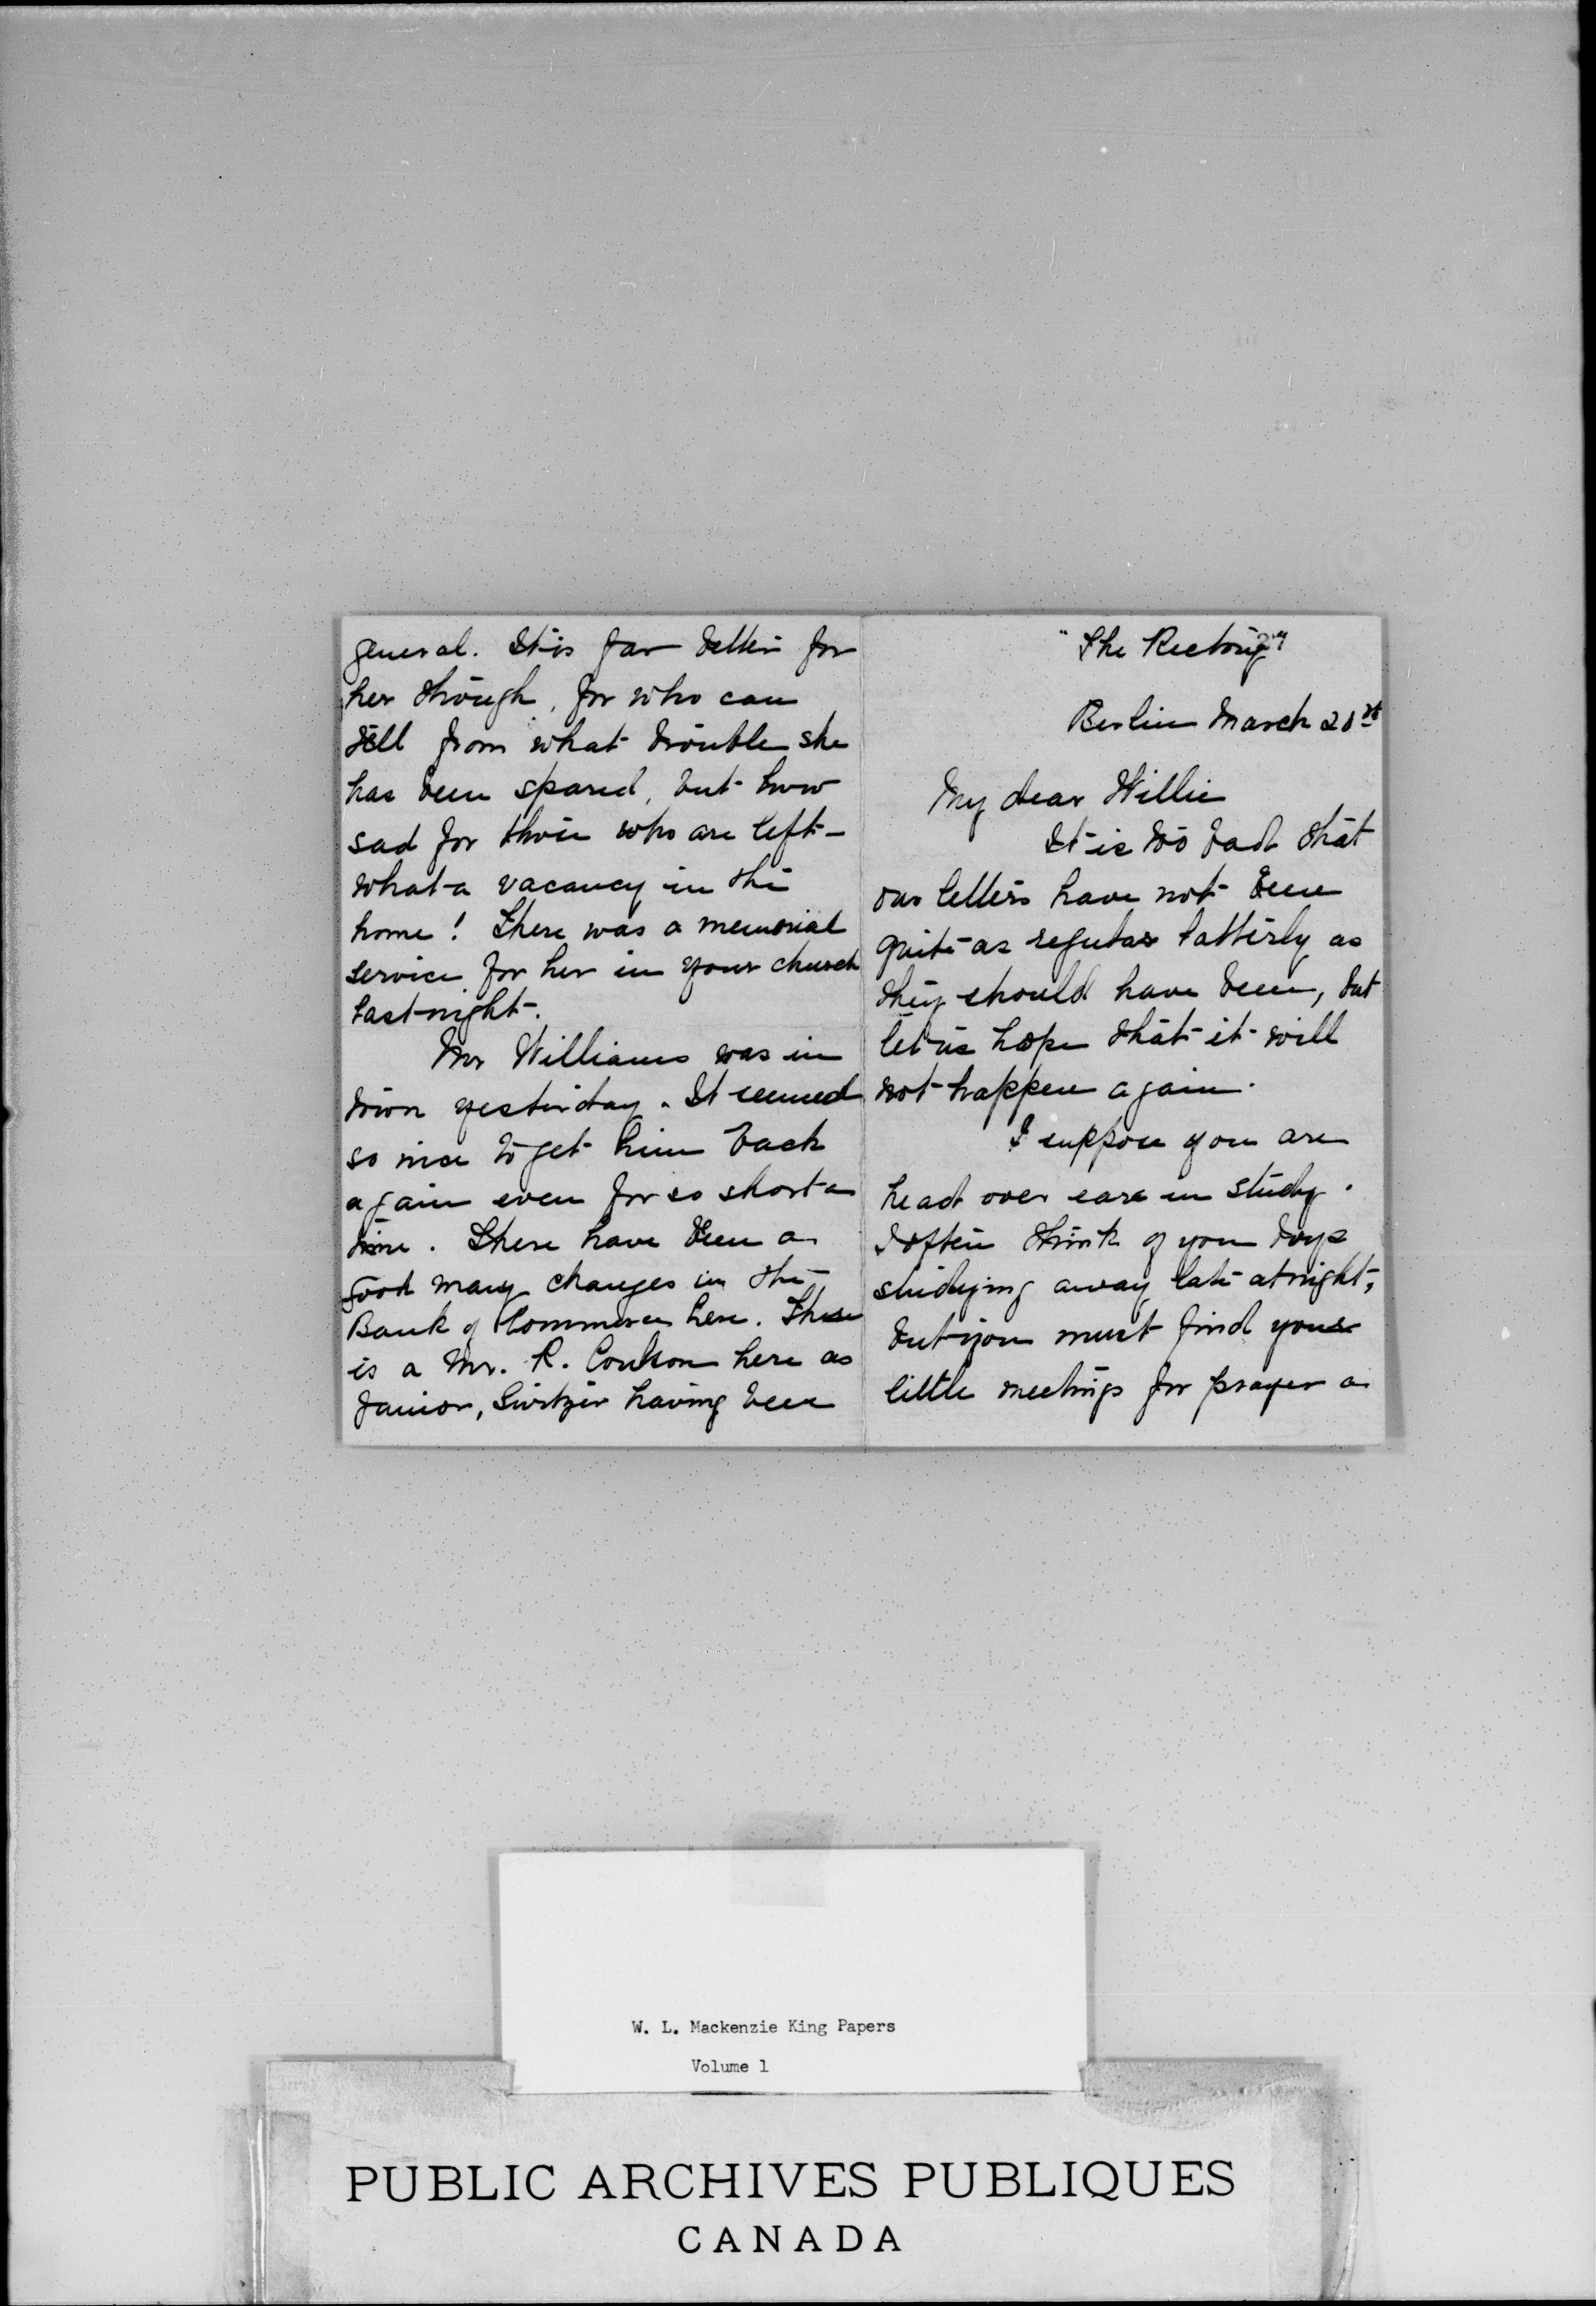 general. It is far better for
her though, for who can
tell from what trouble she
has been spared, but how
sad for those who are left -
what a vacancy in the
home! There was a memorial
service for her in your church
last night.
Mr Williams was in
town yesterday. It seemed
so nice to get him back
again even for so short a
time. There have been a
good many changes in the
Bank of Commerce here. There
is a Mr. R. Coulson here as
Junior, having been
"The Rectory"
Berlin March
My dear Willie
It is too bad that
our letters have not been
quite as regular latterly as
they should have been, but
let us hope that it will
not happen again.
I suppose you are
head over ears in study.
I often think of you boys
studying away late at night,
but you must find your
little meetings for prayer a
W. L. Mackenzie King Papers
Volume 1
PUBLIC ARCHIVES PUBLIQUES
CANADA